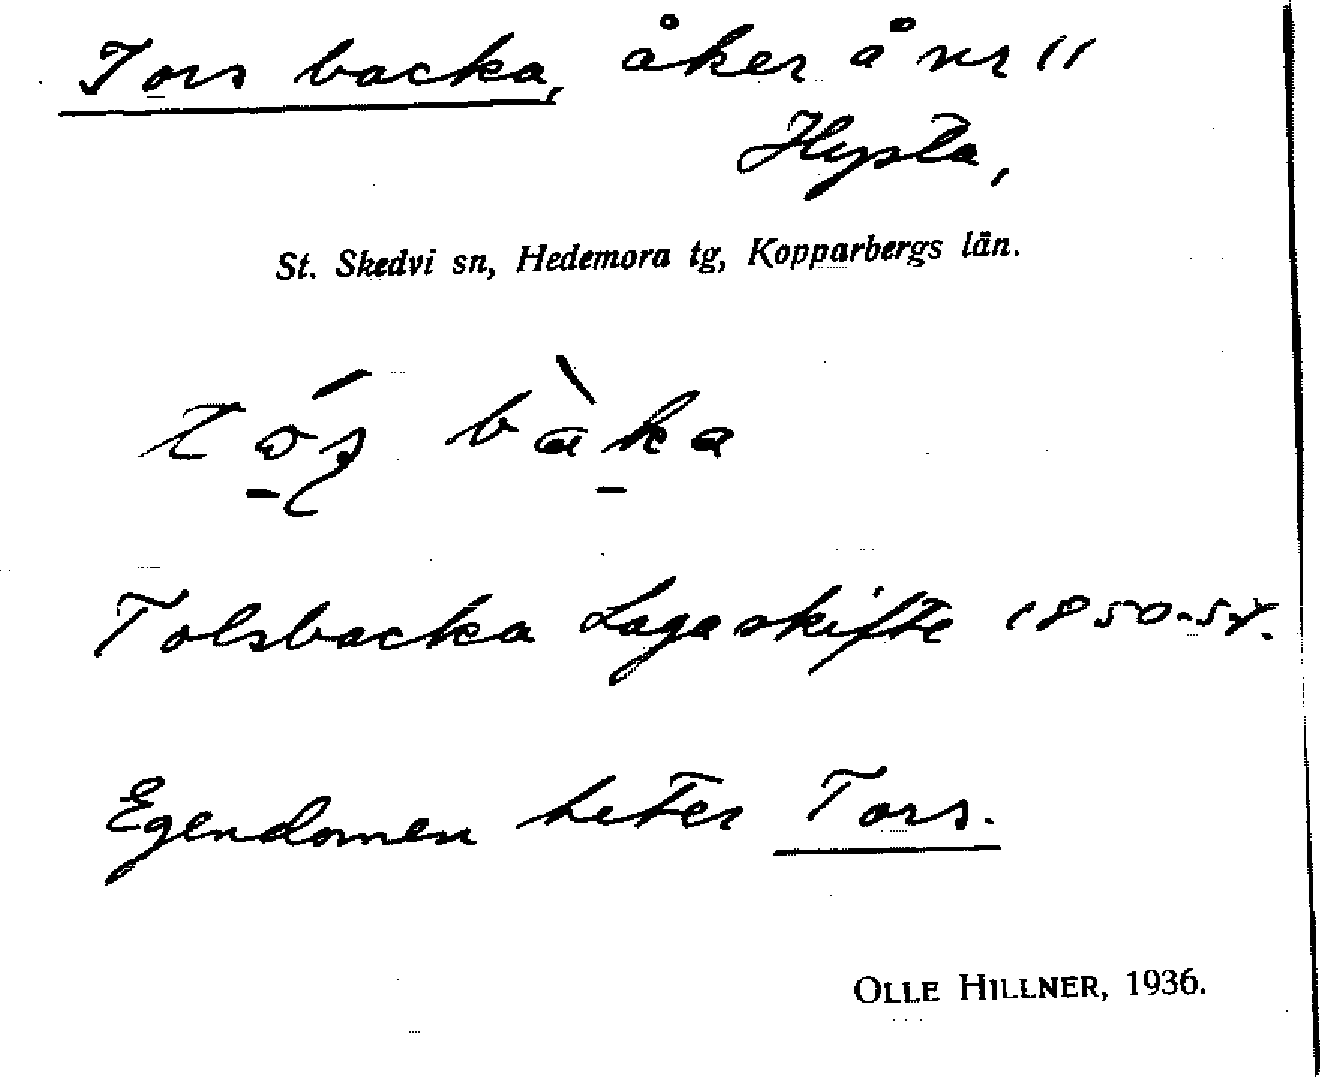 Tors backa, åker å nr 11
Hysta,
St. Skedvi sn, Hedemora tg, Kopparbergs län.
tó̱ʂ bà̱ka
Tolsbacka Lagaskifte 1850-54.
Egendomen heter Tors.
OLLE HILLNER, 1936.